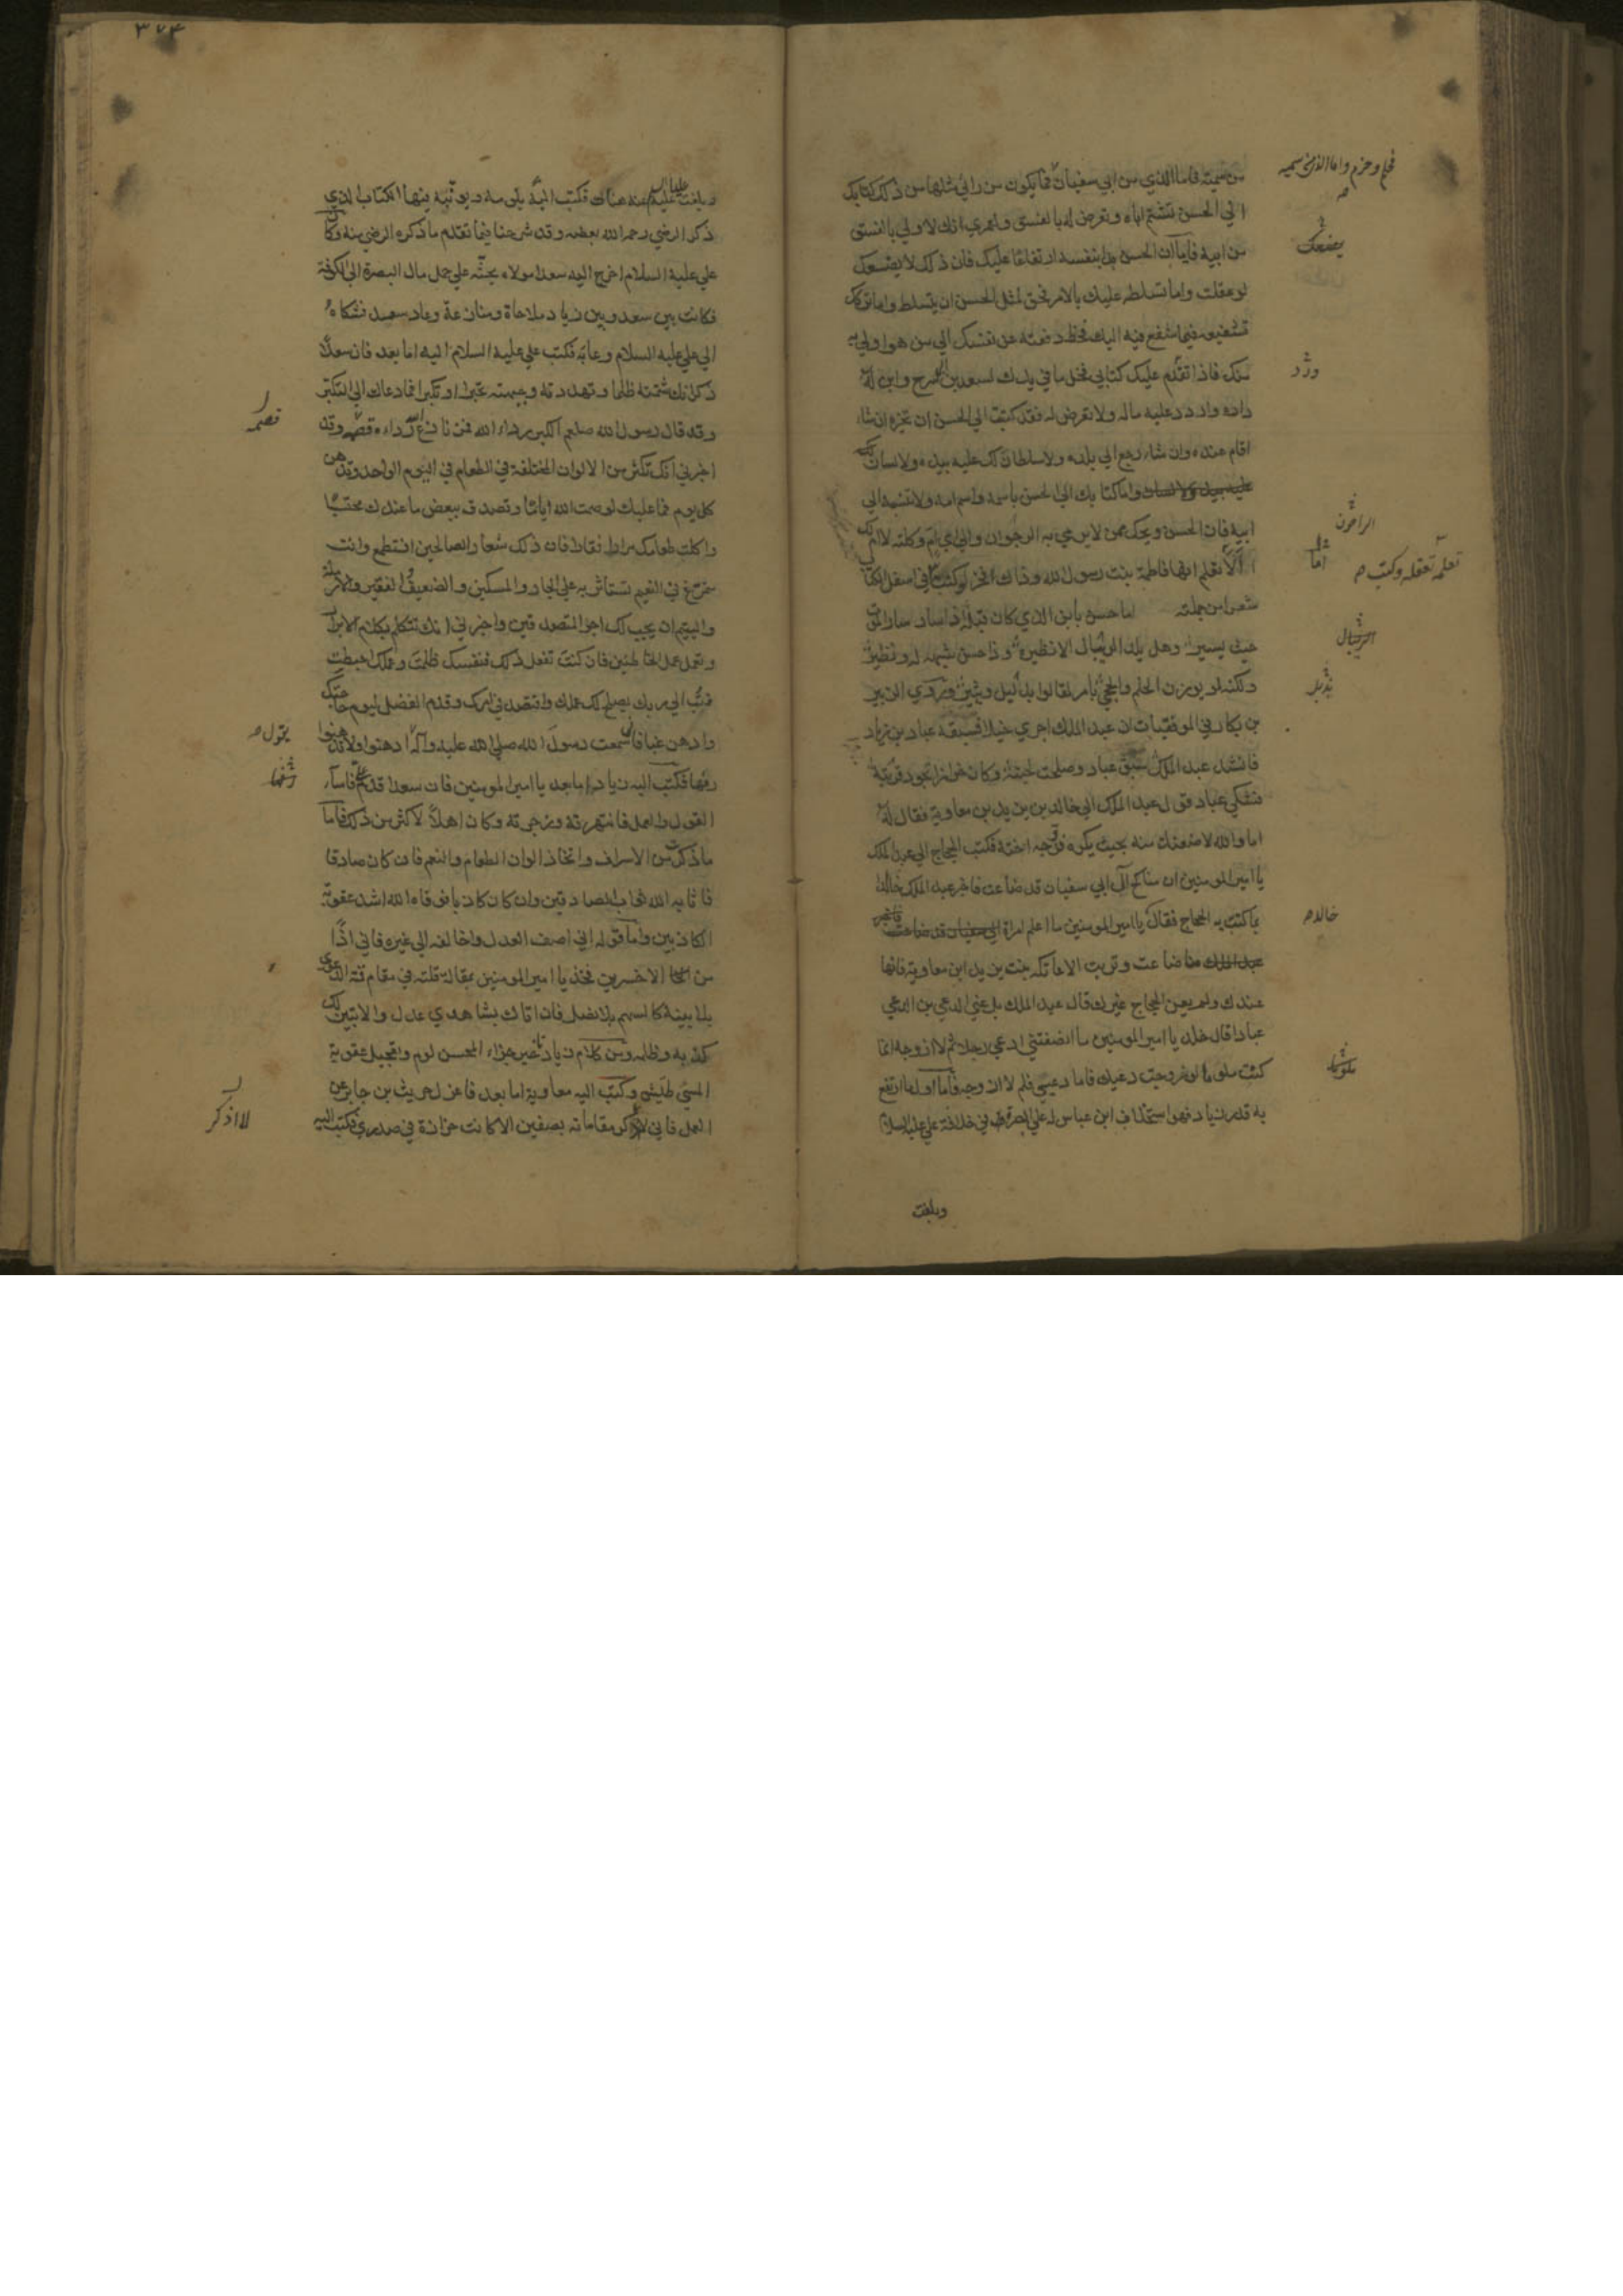 من سمية فاما الذي من ابي سفيان فما يكون من رائي مثلها من ذلك كتابك
الي الحسن تشتم اباه وتعرض له بالفسق ولعمري انك لاولي بالفسق
من ابيه فاما ان الحسن بدا بنفسه ارتفاعا عليك فان ذلك لا يضعك
لو عقلت واما تسلطه عليك بالامر فحق لمثل الحسن ان يتسلط واما تركك
تشفيعه فيما شفع فيه اليك فحظ دفعته عن نفسك الي من هو اولي به
منك فاذا تقدم عليك كتابي فخل ما في يدك لسعد بن ابي سرح وابن له
داره واردد عليه ماله ولا تعرض له فقد كتبت الي الحسن ان يخيره ان شاء
اقام عنده وان شاء رجع الي بلده ولا سلطان لك عليه بيد ولا لسان
عليه بيد ولا لسان واما كتابك الي الحسن باسمه واسم امه ولا تنسبه الي
ابيه فان الحسن ويحك ممن لا يرمي به الرجوان والي اي ام وكلته لا ام لك
الا تعلم انها فاطمة بنت رسول الله وذاك افخر له وكتب في اسفل الكتاب
شعرا من جملته اما حسن بابن الذي كان قبله اذا سار سار الموت
حيث يسير وهل يلد الرئبال الا نظيره وذا حسن شبه له ونظير
ولكنه لو يوزن الحلم والحجي بامر لقالوا يذبل وثبير وروي الزبير
بن بكار في الموفقيات ان عبد الملك اجري خيلا فسبقه عباد بن زياد
فانشد عبد الملك سبق عباد وصلت لحيته وكان خرازا تجود قربته
فشكي عباد قول عبد الملك الي خالد بن يزيد بن معاوية فقال له
اما والله لاضعنك منه بحيث يكره فزوجه اخته فكتب الحجاج الي عبد الملك
يا امير المومنين ان مناكح آل ابي سفيان قد ضاعت فاخبر عبد الملك خالدا
بما كتب به الحجاج فقال يا امير المومنين ما اعلم امراة ابي سفيان قد ضاعت فاخبر
عبد الملك منا ضاعت ونزلت الا عاتكة بنت يزيد ابن معاوية فانها
عندك ولم يعن الحجاج غيرك قال عبد الملك بل عني الدعي بن الدعي
عبادا قال خالد يا امير المومنين ما انصفتني ادعي رجلا ثم لا ازوجه انما
كنت ملوما لو زوجت دعيك فاما دعيي فلم لا ازوجه فاما اول ما ارتفع
به قدر زياد فهو استخلاف ابن عباس له علي البصرة في خلافة علي عليه السلام
وبلغت
فخلم وحزم واما الذي من سمية
يضعك
وردد
الراجون
اما
تعلمه تعقله وكتب
الرئبال
يذبل
خالد
ملوما
٣٧٤
وبلغت عليا عليه السلام عنه هنات فكتب اليه يلومه ويونبه فمنها الكتاب الذي
ذكر الرضي رحمه الله بعضه وقد شرحنا فيما تقدم ما ذكره الرضي منه وكان
علي عليه السلام اخرج اليه سعدا مولاه يحثه علي حمل مال البصرة الي الكوفة
فكانت بين سعد وبين زياد ملاحاة ومنازعة وعاد سعد فشكاه
الي علي عليه السلام وعابه فكتب علي عليه السلام اليه اما بعد فان سعدا
ذكر انك شتمته ظلما وتهددته وجبهته تجبرا وتكبرا فما دعاك الي التكبر
وقد قال رسول الله صلعم الكبر رداء الله فمن نازع الله رداءه قصمه وقد
اخبرني انك تكثر من الالوان المختلفة في الطعام في اليوم الواحد وتدهن
كل يوم فما عليك لو صمت الله اياما وتصدقت ببعض ما عندك محتسبا
واكلت طعامك مرارا قفارا فان ذلك شعار الصالحين افتطمع وانت
متمرغ في النعيم تستاثر به علي الجار والمسكين والضعيف الفقير والارملة
واليتيم ان يجب لك اجر المتصدقين واخبرني انك تتكلم بكلام الابرار
وتعمل عمل الخاطئين فان كنت تفعل ذلك فنفسك ظلمت وعملك احبطت
فتب الي ربك يصلح لك عملك واقتصد في امرك وقدم الفضل ليوم حاجتك
وادهن غبا فاني سمعت رسول الله صلي الله عليه وآله ادهنوا ولا تدهنوا
رفها فكتب اليه زياد اما بعد يا امير المومنين فان سعدا قدم علي فاساء
القول والعمل فانتهرته وزجرته وكان اهلا لاكثر من ذلك فاما
ما ذكرت من الاسراف واتخاذ الوان الطعام والنعم فان كان صادقا
فاثابه الله ثواب الصادقين وان كان كاذبا فوقاه الله اشد عقوبة
الكاذبين واما قوله اني اصف العدل واخالفه الي غيره فاني اذا
من الاخسرين فخذ يا امير المومنين بمقال قلته في مقام قمته الدعوي
بلا بينة كالسهم بلا نصل فان اتاك بشاهدي عدل والا تبين لك
كذبه وظلمه ومن كلام زياد تاخير جزاء المحسن لوم وتعجيل عقوبة
المسئ طيش وكتب اليه معاوية اما بعد فاعزل حريث بن جابر عن
العمل فاني لا اذكر مقاماته بصفين الا كانت حزازة في صدري فكتب اليه
قصمه
يقول
رفها
لا اذكر